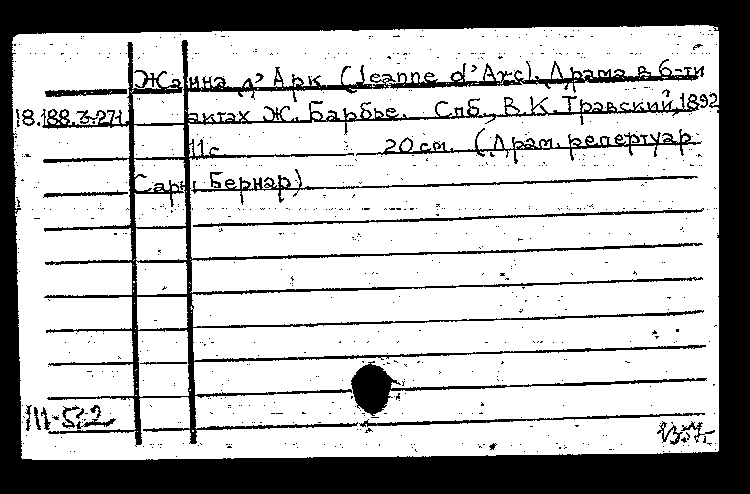 Жанна д'Арк (Jeanne d'Arc). Драма в 6-ти
18.188.3.271. актах Ж. Барбье. Спб., В.К. Травский, 1892
11 с. 20 см. (Драм. репертуар
Сары Бернар)
III-5-2